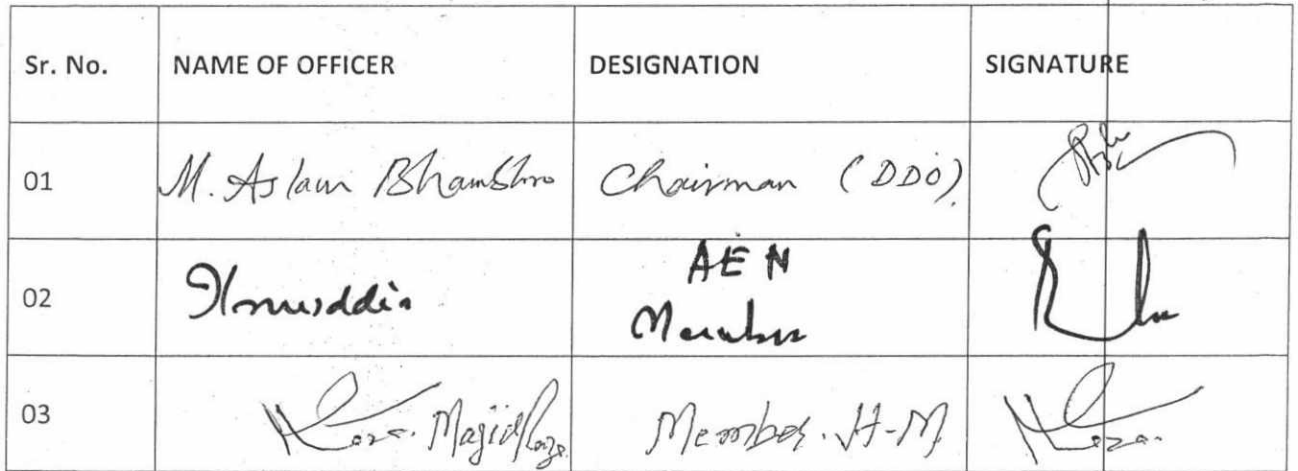 Sr. No. NAME OF OFFICER DESIGNATION SIGNATURE
01 M. Aslam Bhambhro Chairman (DDO)
02 AEN
Member
03 Majid Member. H-M